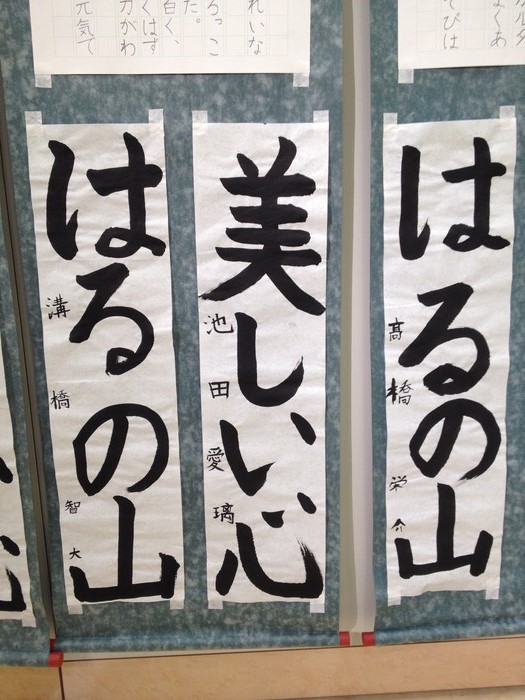 はるの山
高橋栄介
美しい心
池田愛璃
はるの山
溝橋智大
れいな
ろっこ
た。
白く、
くはず
力がわ
元気で
よくあ
てびは